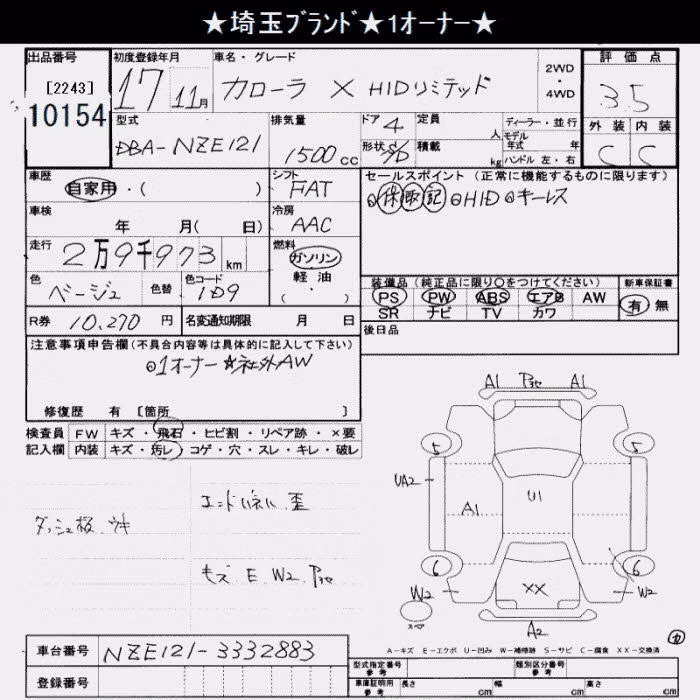 ★埼玉ﾌﾞﾗﾝﾄﾞ★1オーナー★
出品番号
[2243]
10154
初度登録年月
17 11月
車名・グレード
カローラ X HIDリミテッド
2WD・4WD
評価点
3.5
外装 内装
C C
型式
DBA-NZE121
排気量
1500cc
ドア 4
形状 S/D
定員 人
積載 kg
ディーラー・並行
モデル年式 年
ハンドル 左・右
車歴
自家用・( )
シフト
FAT
冷房
AAC
燃料
ガソリン
軽・油
・( )
車検
年 月( 日)
走行
2万9千973 km
色
ベージュ
色替
色コード
1D9
R券 10,270 円
名変通知期限 月 日
セールスポイント (正常に機能するものに限ります)
◎保取記 ◎HID ◎キーレス
装備品(純正品に限り○をつけてください)
PS PW ABS エアB AW
SR ナビ TV カワ
新車保証書
有 無
後日品
注意事項申告欄(不具合内容等は具体的に記入して下さい)
◎1オーナー ☆社外AW
修復歴 有 [箇所 ]
検査員 FW キズ・飛石・ヒビ割・リペア跡・×要
記入欄 内装 キズ・汚レ・コゲ・穴・スレ・キレ・破レ
ダッシュ板 ウキ
歪
キズ E W2
A1 A1
5 5
UA2
A1 U1
6 6
W2 XX W2
スペア
A2
A-キズ E-エクボ U-凹み W-補修跡 S-サビ C-腐食 XX-交換済
車台番号 NZE121-3332883
登録番号
型式指定番号 参考
類別区分番号 参考
車庫証明用 参考 長さ cm 幅 cm 高さ cm